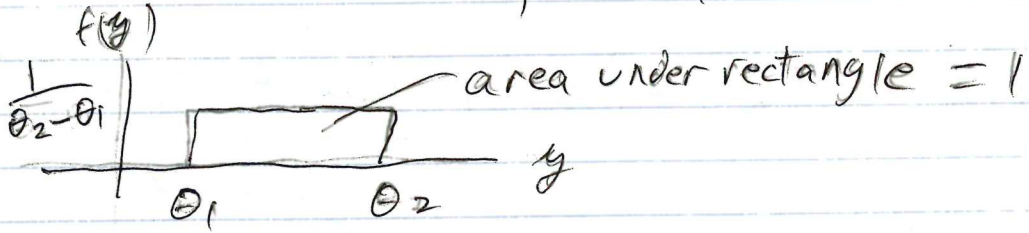 f(y)
1/(θ₂-θ₁)
area under rectangle = 1
y
θ₁ θ₂